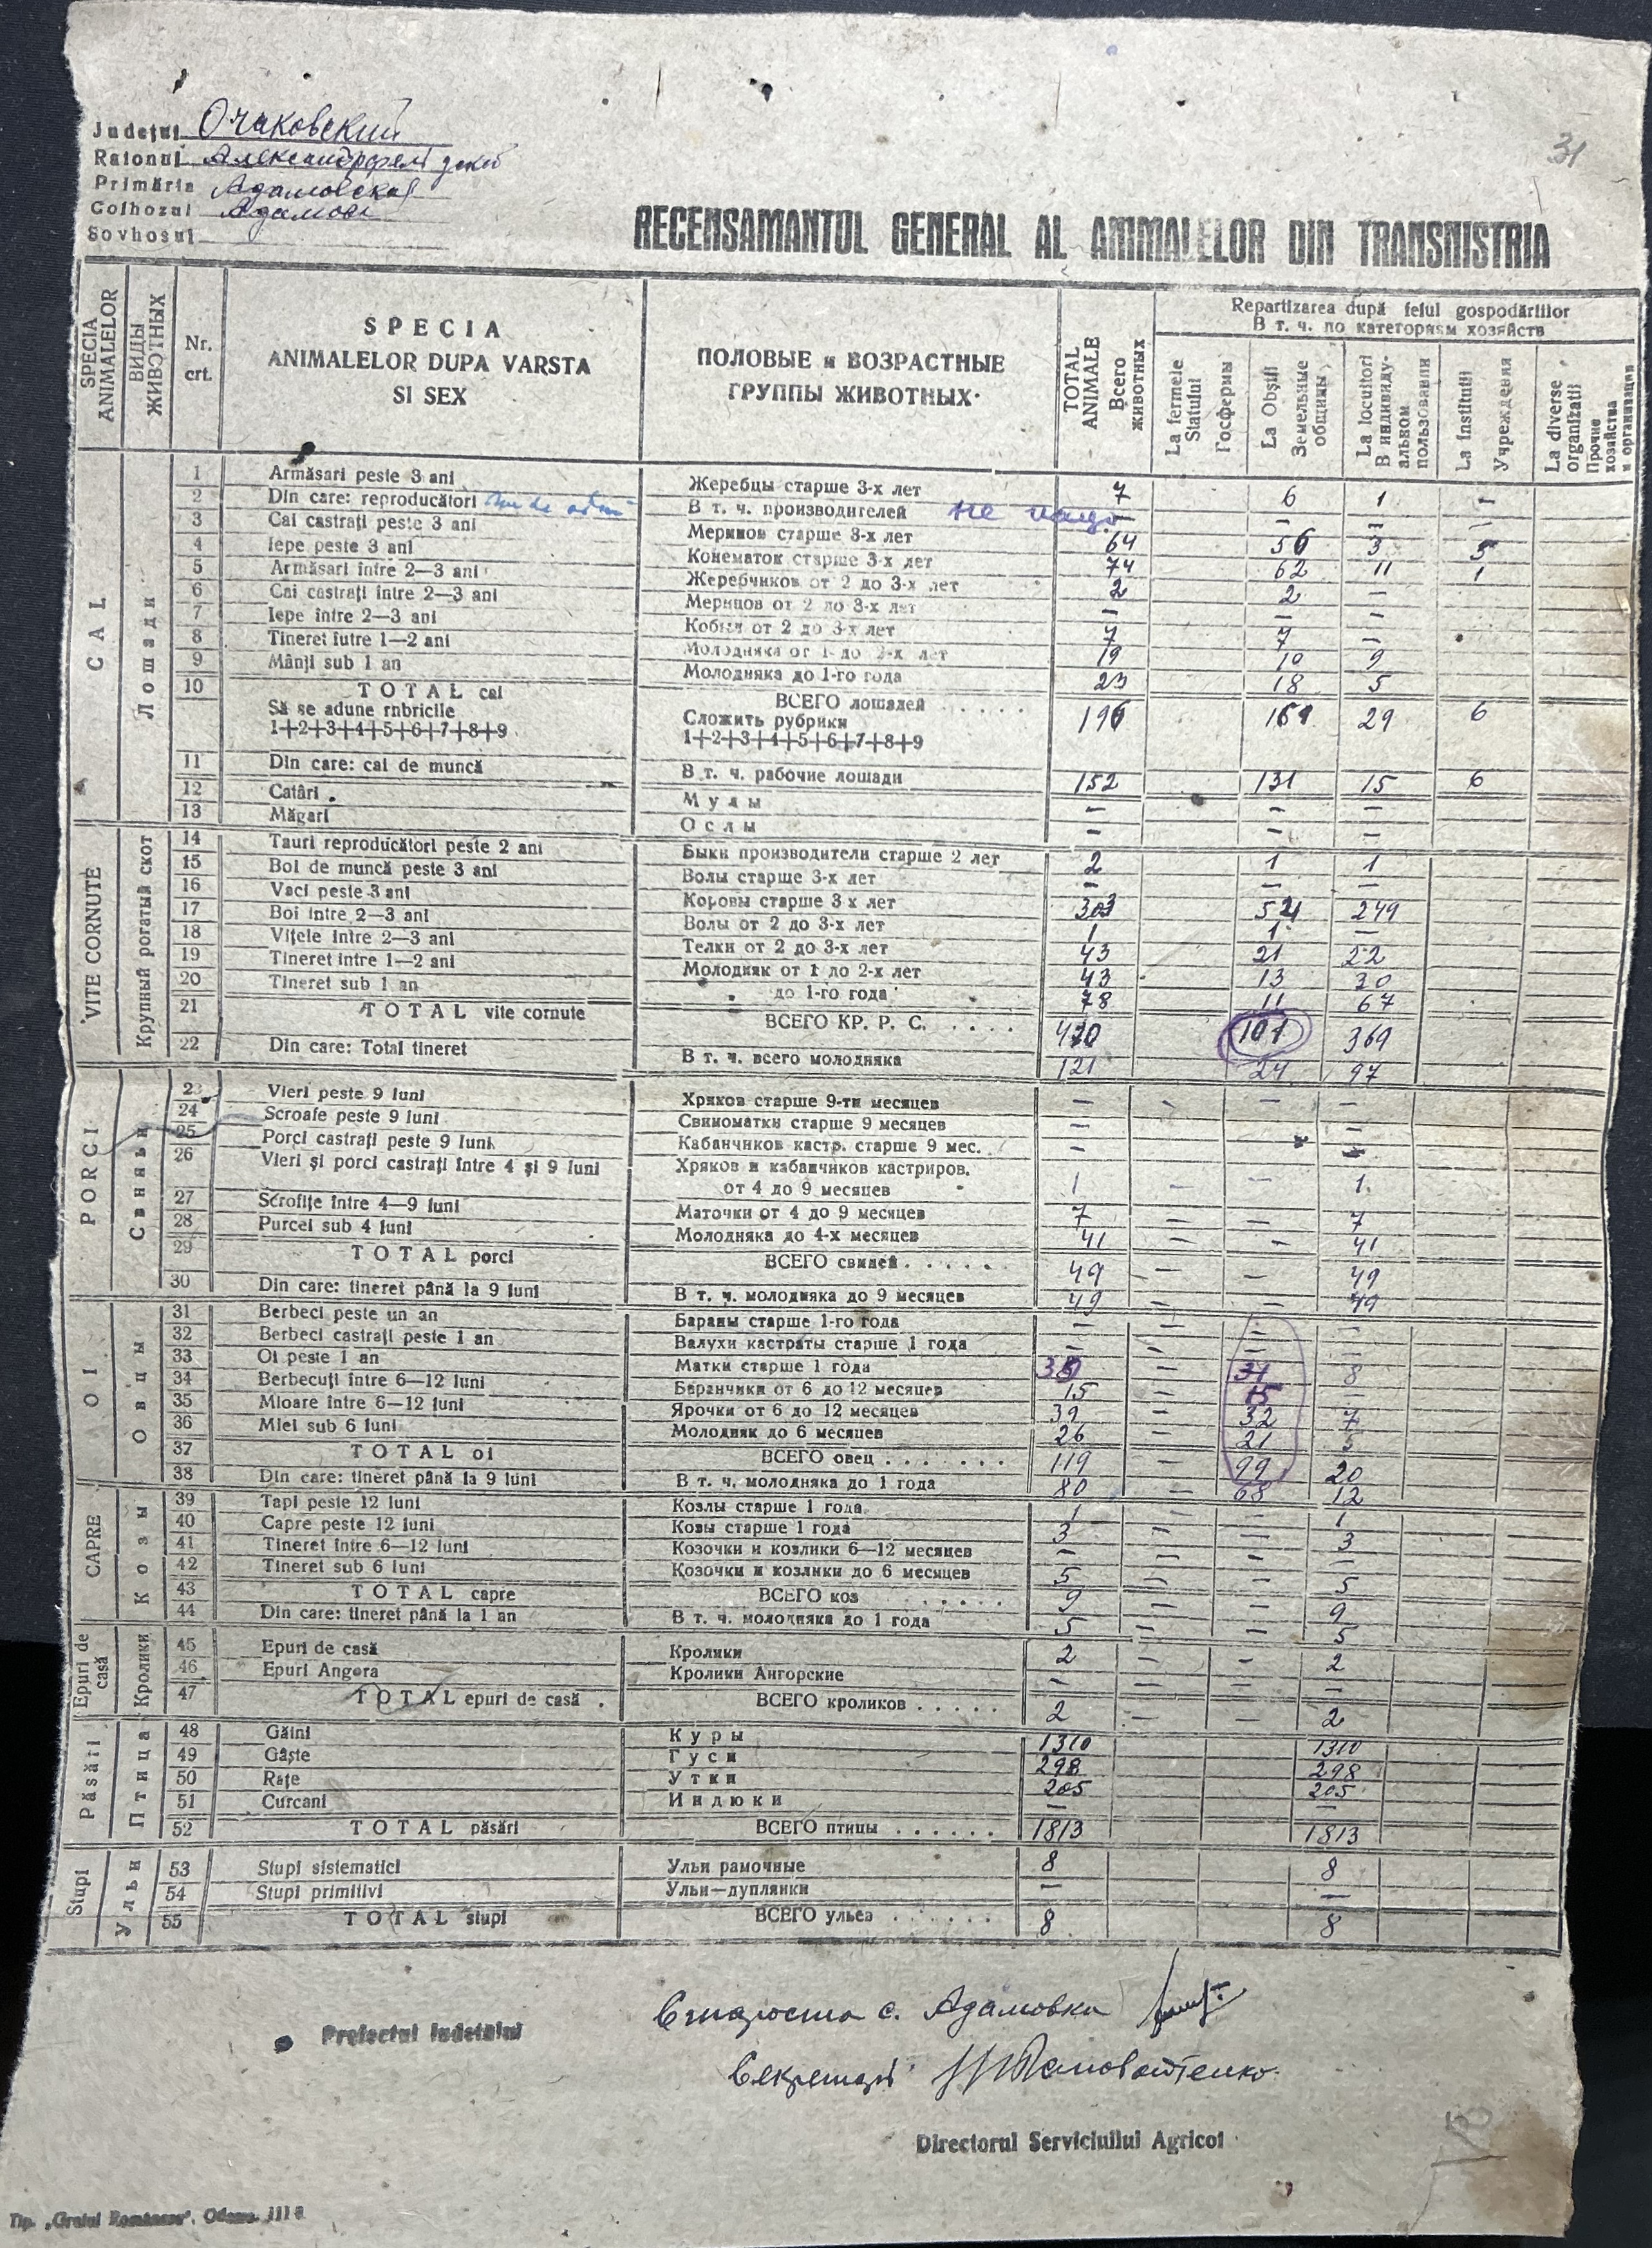 31
Județul Очаковский
Raionul Александрфельдский
Primăria Адамовская
Colhozul Адамовка
Sovhosul
RECENSAMANTUL GENERAL AL ANIMALELOR DIN TRANSNISTRIA
SPECIA ANIMALELOR
ВИДЫ ЖИВОТНЫХ
Nr. crt.
SPECIA ANIMALELOR DUPA VARSTA SI SEX
ПОЛОВЫЕ и ВОЗРАСТНЫЕ ГРУППЫ ЖИВОТНЫХ
TOTAL ANIMALE Всего животных
Repartizarea după felul gospodăriilor
В т. ч. по категориям хозяйств
La fermele Statului Госфермы
La Obștii Земельные общины
La locuitori В индивидуальном пользовании
La instituții Учреждения
La diverse organizații Прочие хозяйства и организации
CAL Лошади
1 Armăsari peste 3 ani Жеребцы старше 3-х лет 7 6 1 –
2 Din care: reproducători В т. ч. производителей не надо – – –
3 Cai castrați peste 3 ani Меринов старше 3-х лет 64 56 3 5
4 Iepe peste 3 ani Конематок старше 3-х лет 74 62 11 1
5 Armăsari între 2—3 ani Жеребчиков от 2 до 3-х лет 2 2 –
6 Cai castrați între 2—3 ani Меринов от 2 до 3-х лет – – –
7 Iepe între 2—3 ani Кобыл от 2 до 3-х лет 7 7 –
8 Tineret iutre 1—2 ani Молодняка от 1 до 2-х лет 19 10 9
9 Mânji sub 1 an Молодняка до 1-го года 23 18 5
10 TOTAL cai ВСЕГО лошадей . . . . .
Să se adune rnbricile Сложить рубрики
1+2+3+4+5+6+7+8+9 1+2+3+4+5+6+7+8+9 196 161 29 6
11 Din care: cai de muncă В т. ч. рабочие лошади 152 131 15 6
12 Catâri Мулы – – –
13 Măgari Ослы – – –
VITE CORNUTE Крупный рогатый скот
14 Tauri reproducători peste 2 ani Быки производители старше 2 лет 2 1 1
15 Boi de muncă peste 3 ani Волы старше 3-х лет – – –
16 Vaci peste 3 ani Коровы старше 3 х лет 303 54 249
17 Boi între 2—3 ani Волы от 2 до 3-х лет 1 1 –
18 Vițele între 2—3 ani Телки от 2 до 3-х лет 43 21 22
19 Tineret intre 1—2 ani Молодняк от 1 до 2-х лет 43 13 30
20 Tineret sub 1 an „ до 1-го года 78 11 67
21 TOTAL vite cornute ВСЕГО КР. Р. С. . . . . 470 101 369
22 Din care: Total tineret В т. ч. всего молодняка 121 24 97
PORCI Свиньи
23 Vieri peste 9 luni Хряков старше 9-ти месяцев – – – –
24 Scroafe peste 9 luni Свиноматки старше 9 месяцев – –
25 Porci castrați peste 9 luni Кабанчиков кастр. старше 9 мес. – – –
26 Vieri și porci castrați între 4 și 9 luni Хряков и кабанчиков кастриров. от 4 до 9 месяцев 1 – – 1
27 Scrofițe între 4—9 luni Маточки от 4 до 9 месяцев 7 – – 7
28 Purcei sub 4 luni Молодняка до 4-х месяцев 41 – – 41
29 TOTAL porci ВСЕГО свиней . . . . . 49 – – 49
30 Din care: tineret până la 9 luni В т. ч. молодняка до 9 месяцев 49 – – 49
OI Овцы
31 Berbeci peste un an Бараны старше 1-го года – – – –
32 Berbeci castrați peste 1 an Валухи кастраты старше 1 года – – – –
33 Oi peste 1 an Матки старше 1 года 39 – 31 8
34 Berbecuți între 6—12 luni Баранчики от 6 до 12 месяцев 15 – 15 –
35 Mioare între 6—12 luni Ярочки от 6 до 12 месяцев 39 – 32 7
36 Miei sub 6 luni Молодняк до 6 месяцев 26 – 21 5
37 TOTAL oi ВСЕГО овец . . . . . . . 119 – 99 20
38 Din care: tineret până la 9 luni В т. ч. молодняка до 1 года 80 – 68 12
CAPRE Козы
39 Tapi peste 12 luni Козлы старше 1 года 1 – – 1
40 Capre peste 12 luni Козы старше 1 года 3 – – 3
41 Tineret între 6—12 luni Козочки и козлики 6—12 месяцев – – – –
42 Tineret sub 6 luni Козочки и козлики до 6 месяцев 5 – – 5
43 TOTAL capre ВСЕГО коз . . . . . 9 – – 9
44 Din care: tineret până la 1 an В т. ч. молодняка до 1 года 5 – – 5
Epuri de casă Кролики
45 Epuri de casă Кролики 2 – – 2
46 Epuri Angora Кролики Ангорские – – – –
47 TOTAL epuri de casă . ВСЕГО кроликов . . . . . 2 – – 2
Păsări Птица
48 Găini Куры 1310 1310
49 Gâște Гуси 298 298
50 Rațe Утки 205 205
51 Curcani Индюки – –
52 TOTAL păsări ВСЕГО птицы . . . . . . 1813 1813
Stupi Ульи
53 Stupi sistematici Ульи рамочные 8 8
54 Stupi primitivi Ульи—дуплянки – –
55 TOTAL stupi ВСЕГО ульев . . . . . . 8 8
Prefectul Iudetului
Староста с. Адамовки
Секретарь
Directorul Serviciului Agricol
Tip. „Graiul Românesc", Odessa.